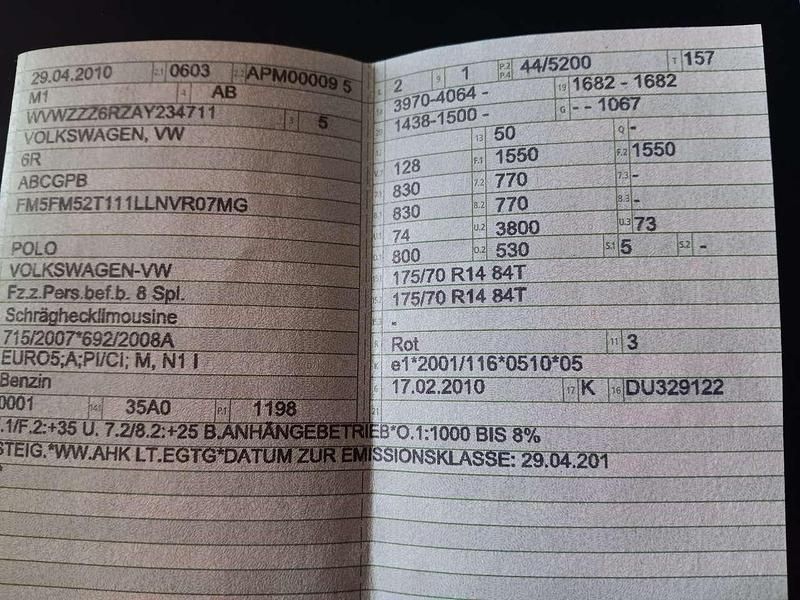 29.04.2010 2.1 0603 2.2 APM00009 5
M1 4 AB
WVWZZZ6RZAY234711 3 5
VOLKSWAGEN, VW
6R
ABCGPB
FM5FM52T111LLNVR07MG
POLO
VOLKSWAGEN-VW
Fz.z.Pers.bef.b. 8 Spl.
Schräghecklimousine
715/2007*692/2008A
EURO5;A;PI/CI; M, N1 I
Benzin
0001 14.1 35A0 P.1 1198
2 9 1 P.2 P.4 44/5200 T 157
3970-4064 - 19 1682 - 1682
1438-1500 - G - - 1067
13 50 Q -
128 F.1 1550 F.2 1550
830 7.2 770 7.3 -
830 8.2 770 8.3 -
74 U.2 3800 U.3 73
800 O.2 530 S.1 5 S.2 -
175/70 R14 84T
175/70 R14 84T
-
R Rot 11 3
K e1*2001/116*0510*05
6 17.02.2010 17 K 16 DU329122
21
.1/F.2:+35 U. 7.2/8.2:+25 B.ANHÄNGEBETRIEB*O.1:1000 BIS 8%
STEIG.*WW.AHK LT.EGTG*DATUM ZUR EMISSIONSKLASSE: 29.04.201
*